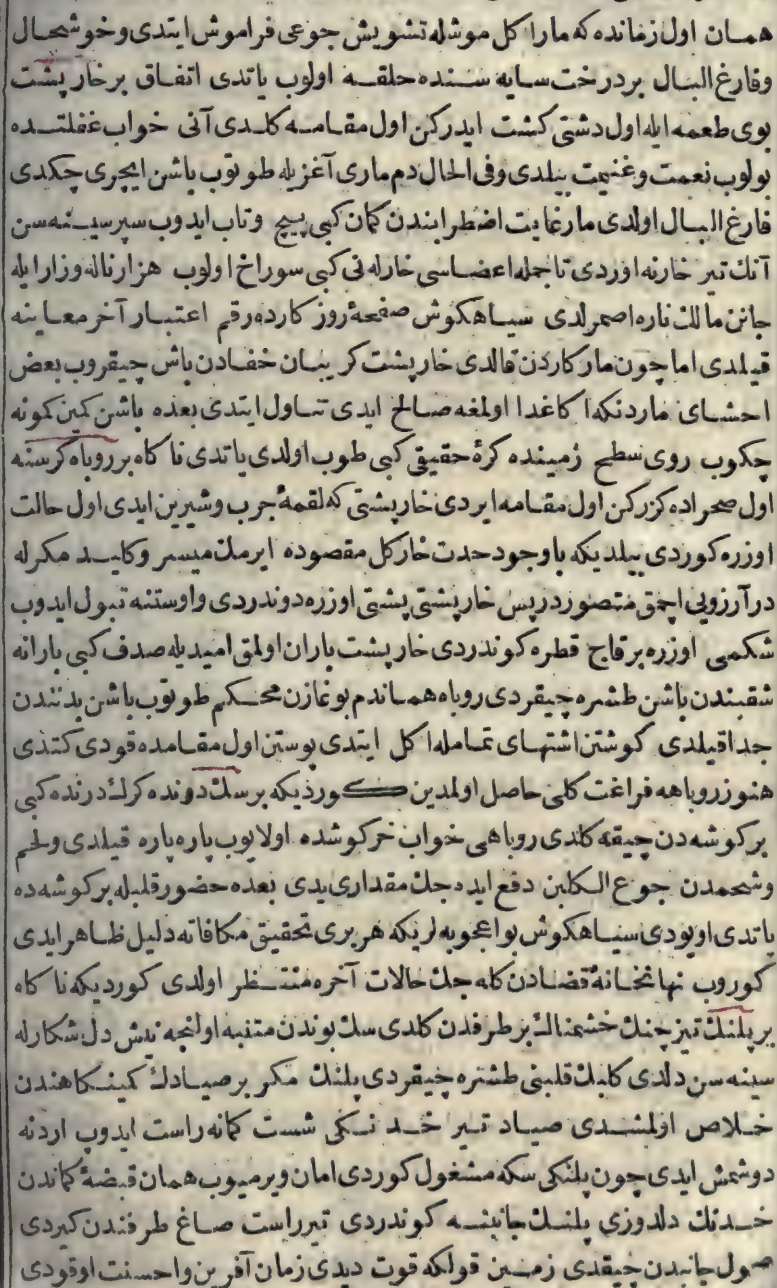 همان اول زمانده كه مارا كل موشله تشويش جوعى فراموش ايتدى وخوشحال
وفارغ البال بر درخت سايه سنده حلقه اولوب ياتدى اتفاق بر خار پشت
بوى طعمه ايله اول دشتى كشت ايدركن اول مقامه كلدى آنى خواب غفلتده
بولوب نعمت وغنيمت بيلدى وفى الحال دم مارى آغزيله طوتوب باشن ايچرى چكدى
فارغ البال اولدى مار غايت اضطرابندن كمان كبى پيچ وتاب ايدوب سپر سينه سن
آنك تير خارنه اوردى تا جمله اعضاسى خارله نى كبى سوراخ اولوب هزار ناله وزار ايله
جانن مالك ناره اصمرلدى سياهكوش صفحهٔ روزكارده رقم اعتبار آخر معاينه
قيلدى اما چون مار كاردن قالدى خار پشت كريبان خفادن باش چيقروب بعض
احشاى ماردنكه اكا غدا اولمغه صالح ايدى تناول ايتدى بعده باشن كمين كمونه
چكوب روى سطح زمينده كرهٔ حقيقى كبى طوب اولدى ياتدى ناكاه بر روباه كرسنه
اول صحراده كزركن اول مقامه ايردى خار پشتى كه لقمهٔ چرب وشيرين ايدى اول حالت
اوزره كوردى بيلديكه باوجود حدت خار كل مقصوده ايرمك ميسر وكليد مكرله
در آرزويى اچمق متصوردر پس خار پشتى پشتى اوزره دوندردى واوستنه تبول ايدوب
شكمى اوزره بر قاج قطره كوندردى خار پشت باران اولمق اميديله صدف كبى بارانه
شقبندن باشن طشره چيقردى روباه همان دم بوغازن محكم طوتوب باشن بدنندن
جدا قيلدى كوشتن اشتهاى تمامله اكل ايتدى پوستن اول مقامده قودى كتدى
هنوز روباهه فراغت كلى حاصل اولمدين كورديكه بر سك دونده كرك درنده كبى
بر كوشه دن چيقه كلدى روباهى خواب خركوشده اولايوب پاره پاره قيلدى ولحم
وشحمدن جوع الكلبن دفع ايده جك مقدارى يدى بعده حضور قلبله بر كوشه ده
ياتدى اويودى سياهكوش بو اعجوبه لريكه هر برى تحقيق مكافاته دليل ظاهر ايدى
كوروب نهانخانهٔ قضادن كله جك حالات آخره منتظر اولدى كورديكه ناكاه
بر پلنك تيز چنك خشمناك بر طرفدن كلدى سك بوندن متنبه اولنجه نيش دل شكارله
سينه سن دلدى كلبك قلبنى طشره چيقردى پلنك مكر بر صيادك كمينكاهندن
خلاص اولمشدى صياد تير خدنكى شست كمانه راست ايدوب اردنه
دوشمش ايدى چون پلنكى سكه مشغول كوردى امان ويرميوب همان قبضهٔ كماندن
خدنك دلدوزى پلنك جانبنه كوندردى تير راست صاغ طرفندن كيردى
صول جانبدن چيقدى زمين قولكه قوت ديدى زمان آفرين واحسنت اوقودى